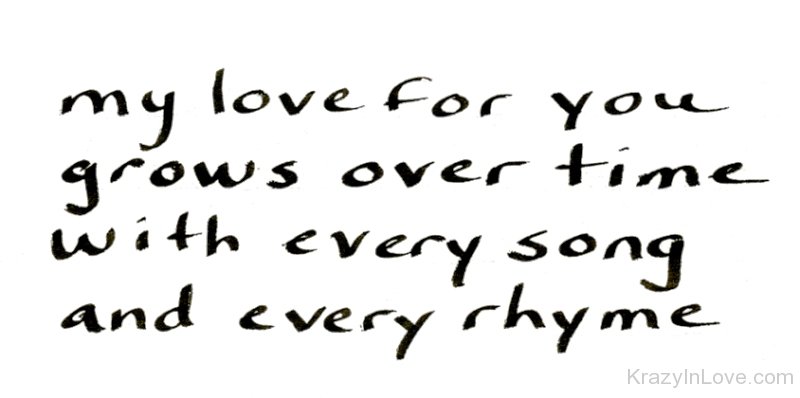 my love for you
grows over time
with every song
and every rhyme
KrazyInLove.com